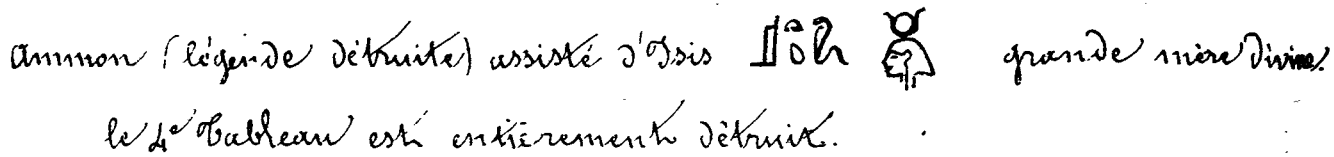 Ammon (légende détruite) assisté d'Isis grande mère divine.
le 4e Tableau est entièrement détruit.